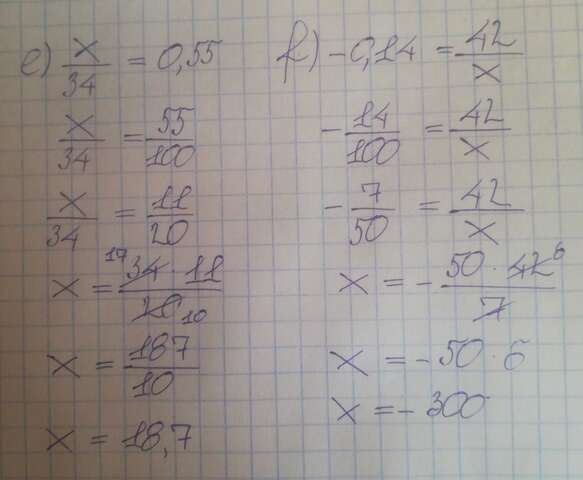 e) x/34 = 0,55
x/34 = 55/100
x/34 = 11/20
x = 17 34 · 11 / 20 10
x = 187/10
x = 18,7
f) -0,14 = 42/x
-14/100 = 42/x
-7/50 = 42/x
x = -50 · 42 6 / 7
x = -50 · 6
x = -300